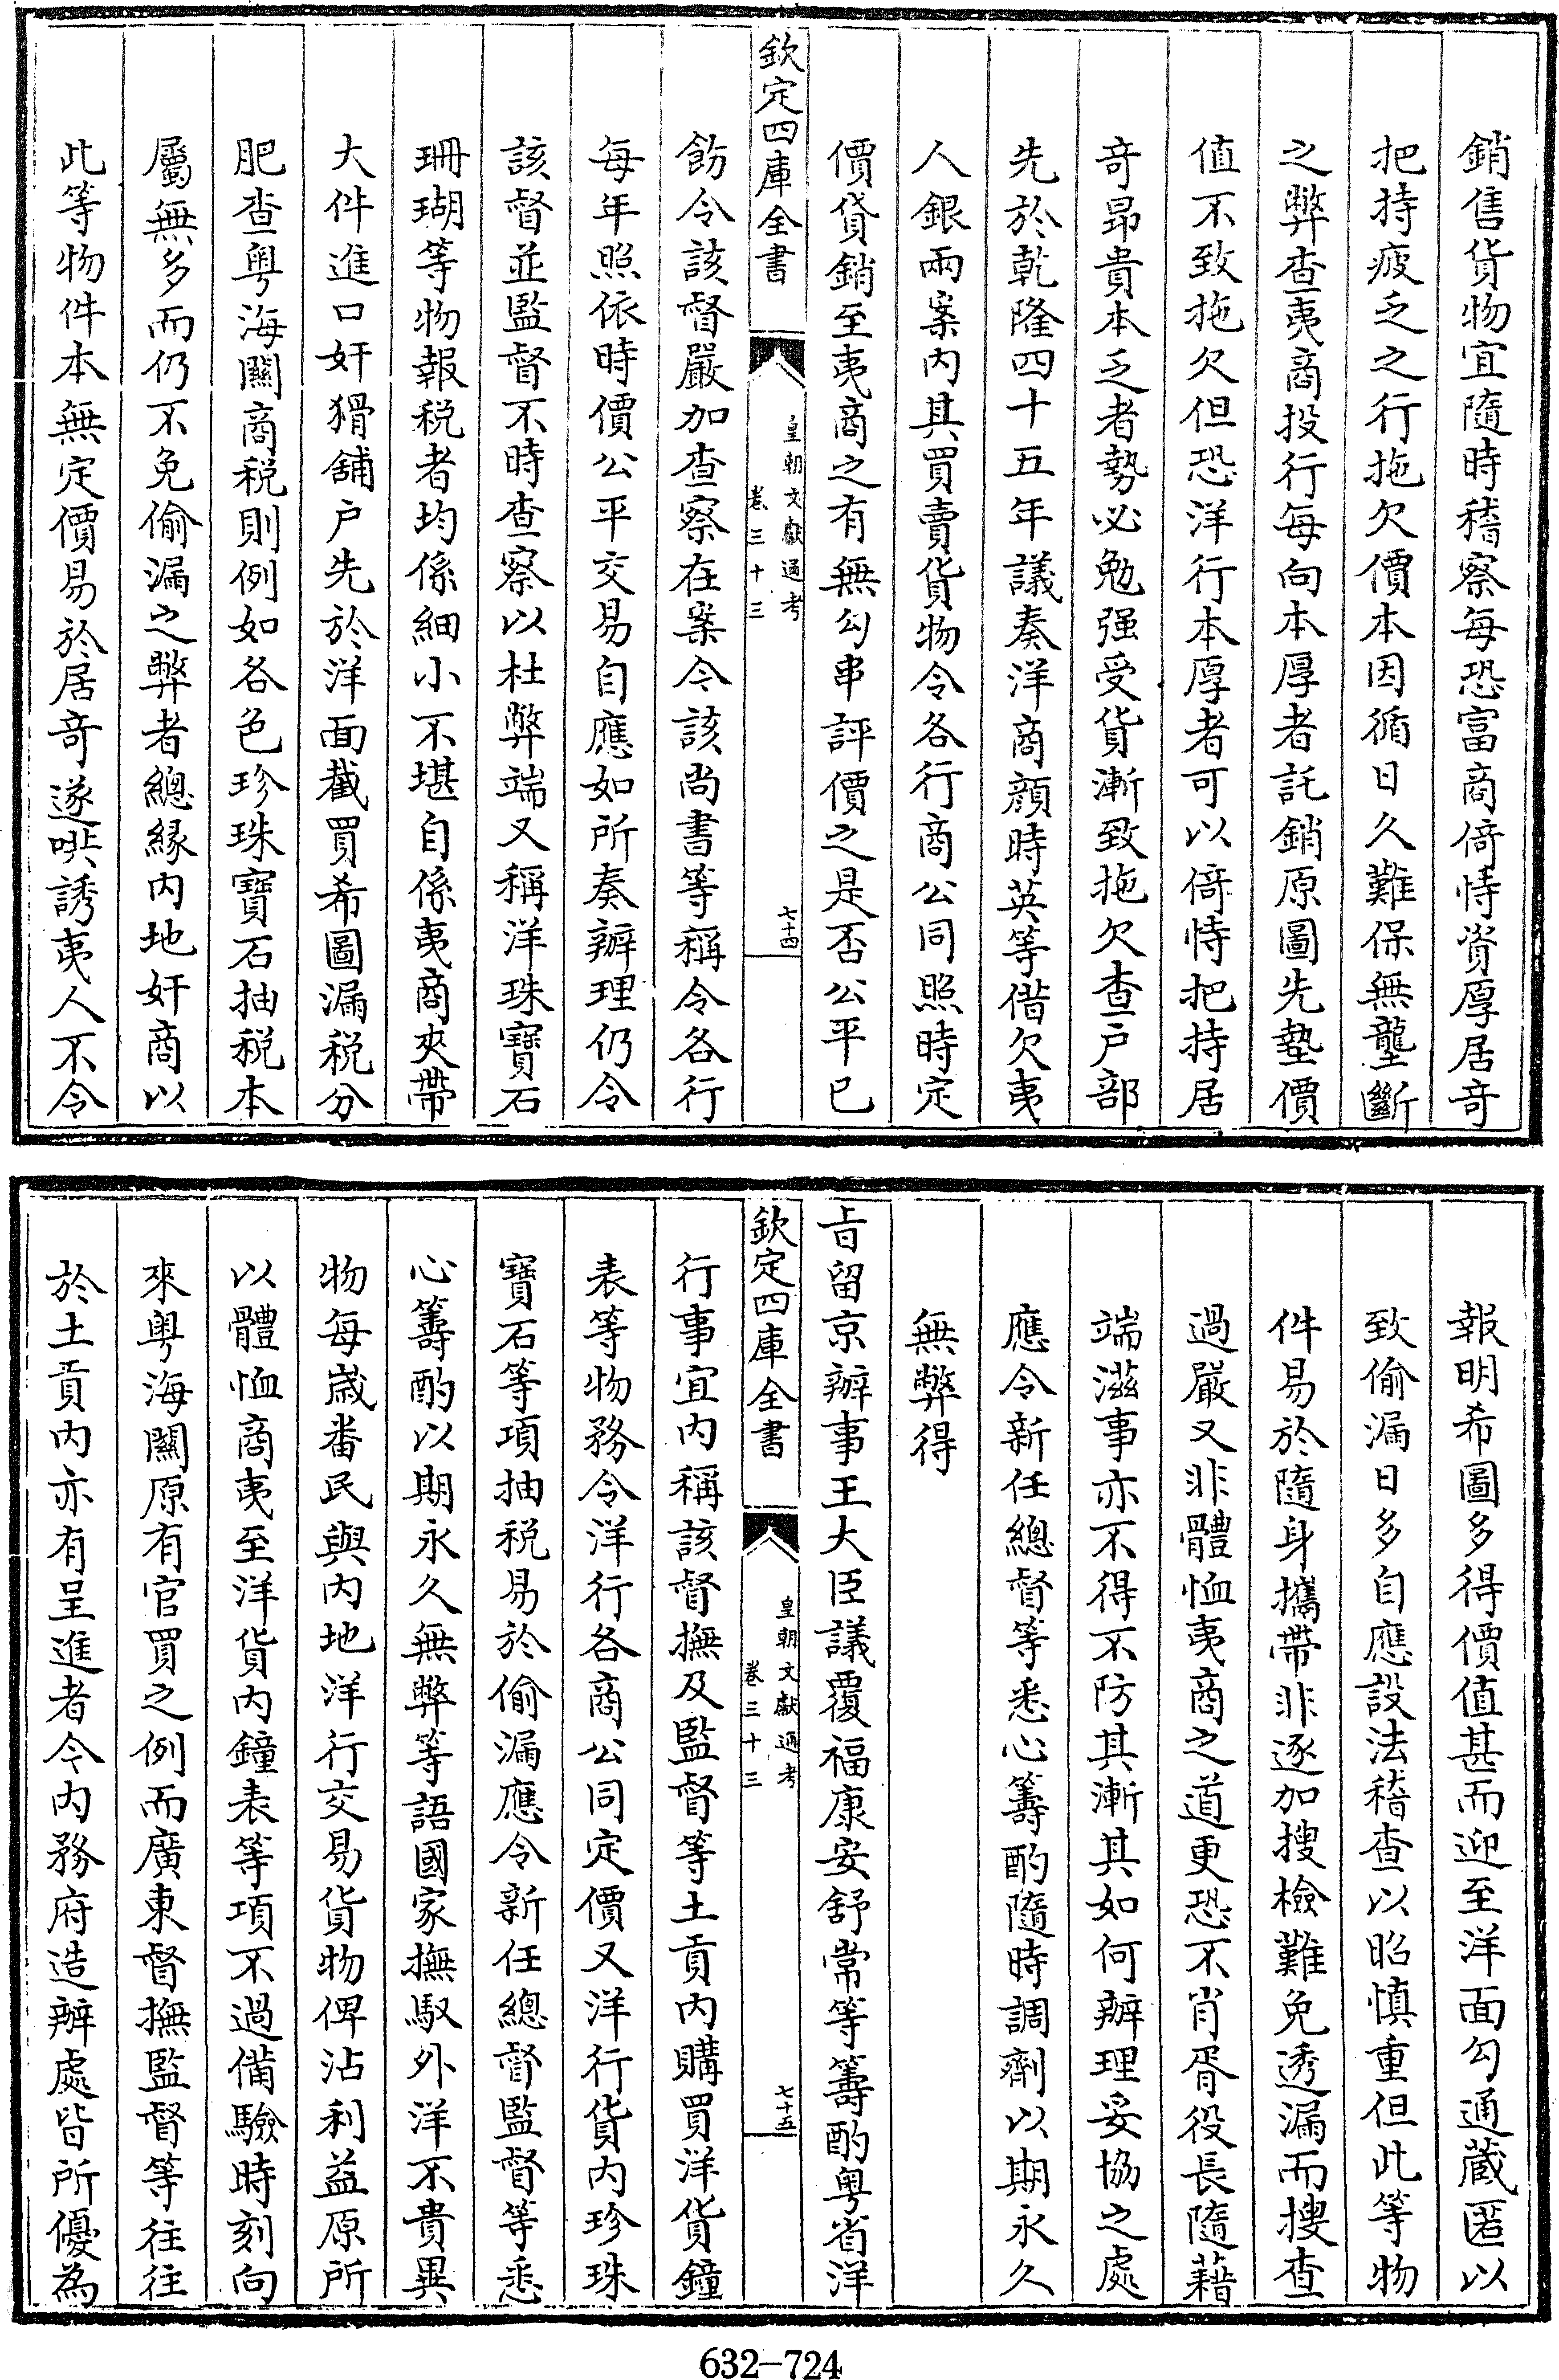 銷售貨物宜隨時稽察每恐富商倚恃資厚居奇
把持疲乏之行拖欠價本因循日久難保無壟斷
之弊查夷商投行每向本厚者託銷原圖先墊價
值不致拖欠但恐洋行本厚者可以倚恃把持居
奇昻貴本乏者勢必勉强受貨漸致拖欠查户部
先於乾隆四十五年議奏洋商顔時英等偕欠夷
人銀兩案内其買賣貨物令各行商公同照時定
價貸銷至夷商之有無勾串評價之是否公平已
欽定四庫全書
皇朝文獻通考
卷三十三
七十四
飭令該督嚴加查察在案令該尚書等稱令各行
每年照依時價公平交易自應如所奏辦理仍令
該督並監督不時查察以杜弊端又稱洋珠寶石
珊瑚等物報税者均係細小不堪自係夷商夾帶
大件進口奸猾舖户先於洋面截買希圖漏税分
肥查粤海關商税則例如各色珍珠寶石抽税本
屬無多而仍不免偷漏之弊者總緣内地奸商以
此等物件本無定價易於居奇遂哄誘夷人不令
報明希圖多得價值甚而迎至洋面勾通藏匿以
致偷漏日多自應設法稽查以昭慎重但此等物
件易於隨身攜帶非逐加搜檢難免透漏而搜查
過嚴又非體恤夷商之道更恐不肖胥役長隨藉
端滋事亦不得不防其漸其如何辦理妥協之處
應令新任總督等悉心籌酌隨時調劑以期永久
無弊得
旨留京辦事王大臣議覆福康安舒常等籌酌粤省洋
欽定四庫全書
皇朝文獻通考
卷三十三
七十五
行事宜内稱該督撫及監督等土貢内購買洋貨鐘
表等物務令洋行各商公同定價又洋行貨内珍珠
寶石等項抽税易於偷漏應令新任總督監督等悉
心籌酌以期永久無弊等語國家撫馭外洋不貴異
物每歲番民與内地洋行交易貨物俾沾利益原所
以體恤商夷至洋貨内鐘表等項不過備驗時刻向
來粤海關原有官買之例而廣東督撫監督等往往
於土貢内亦有呈進者令内務府造辦處皆所優為
632-724